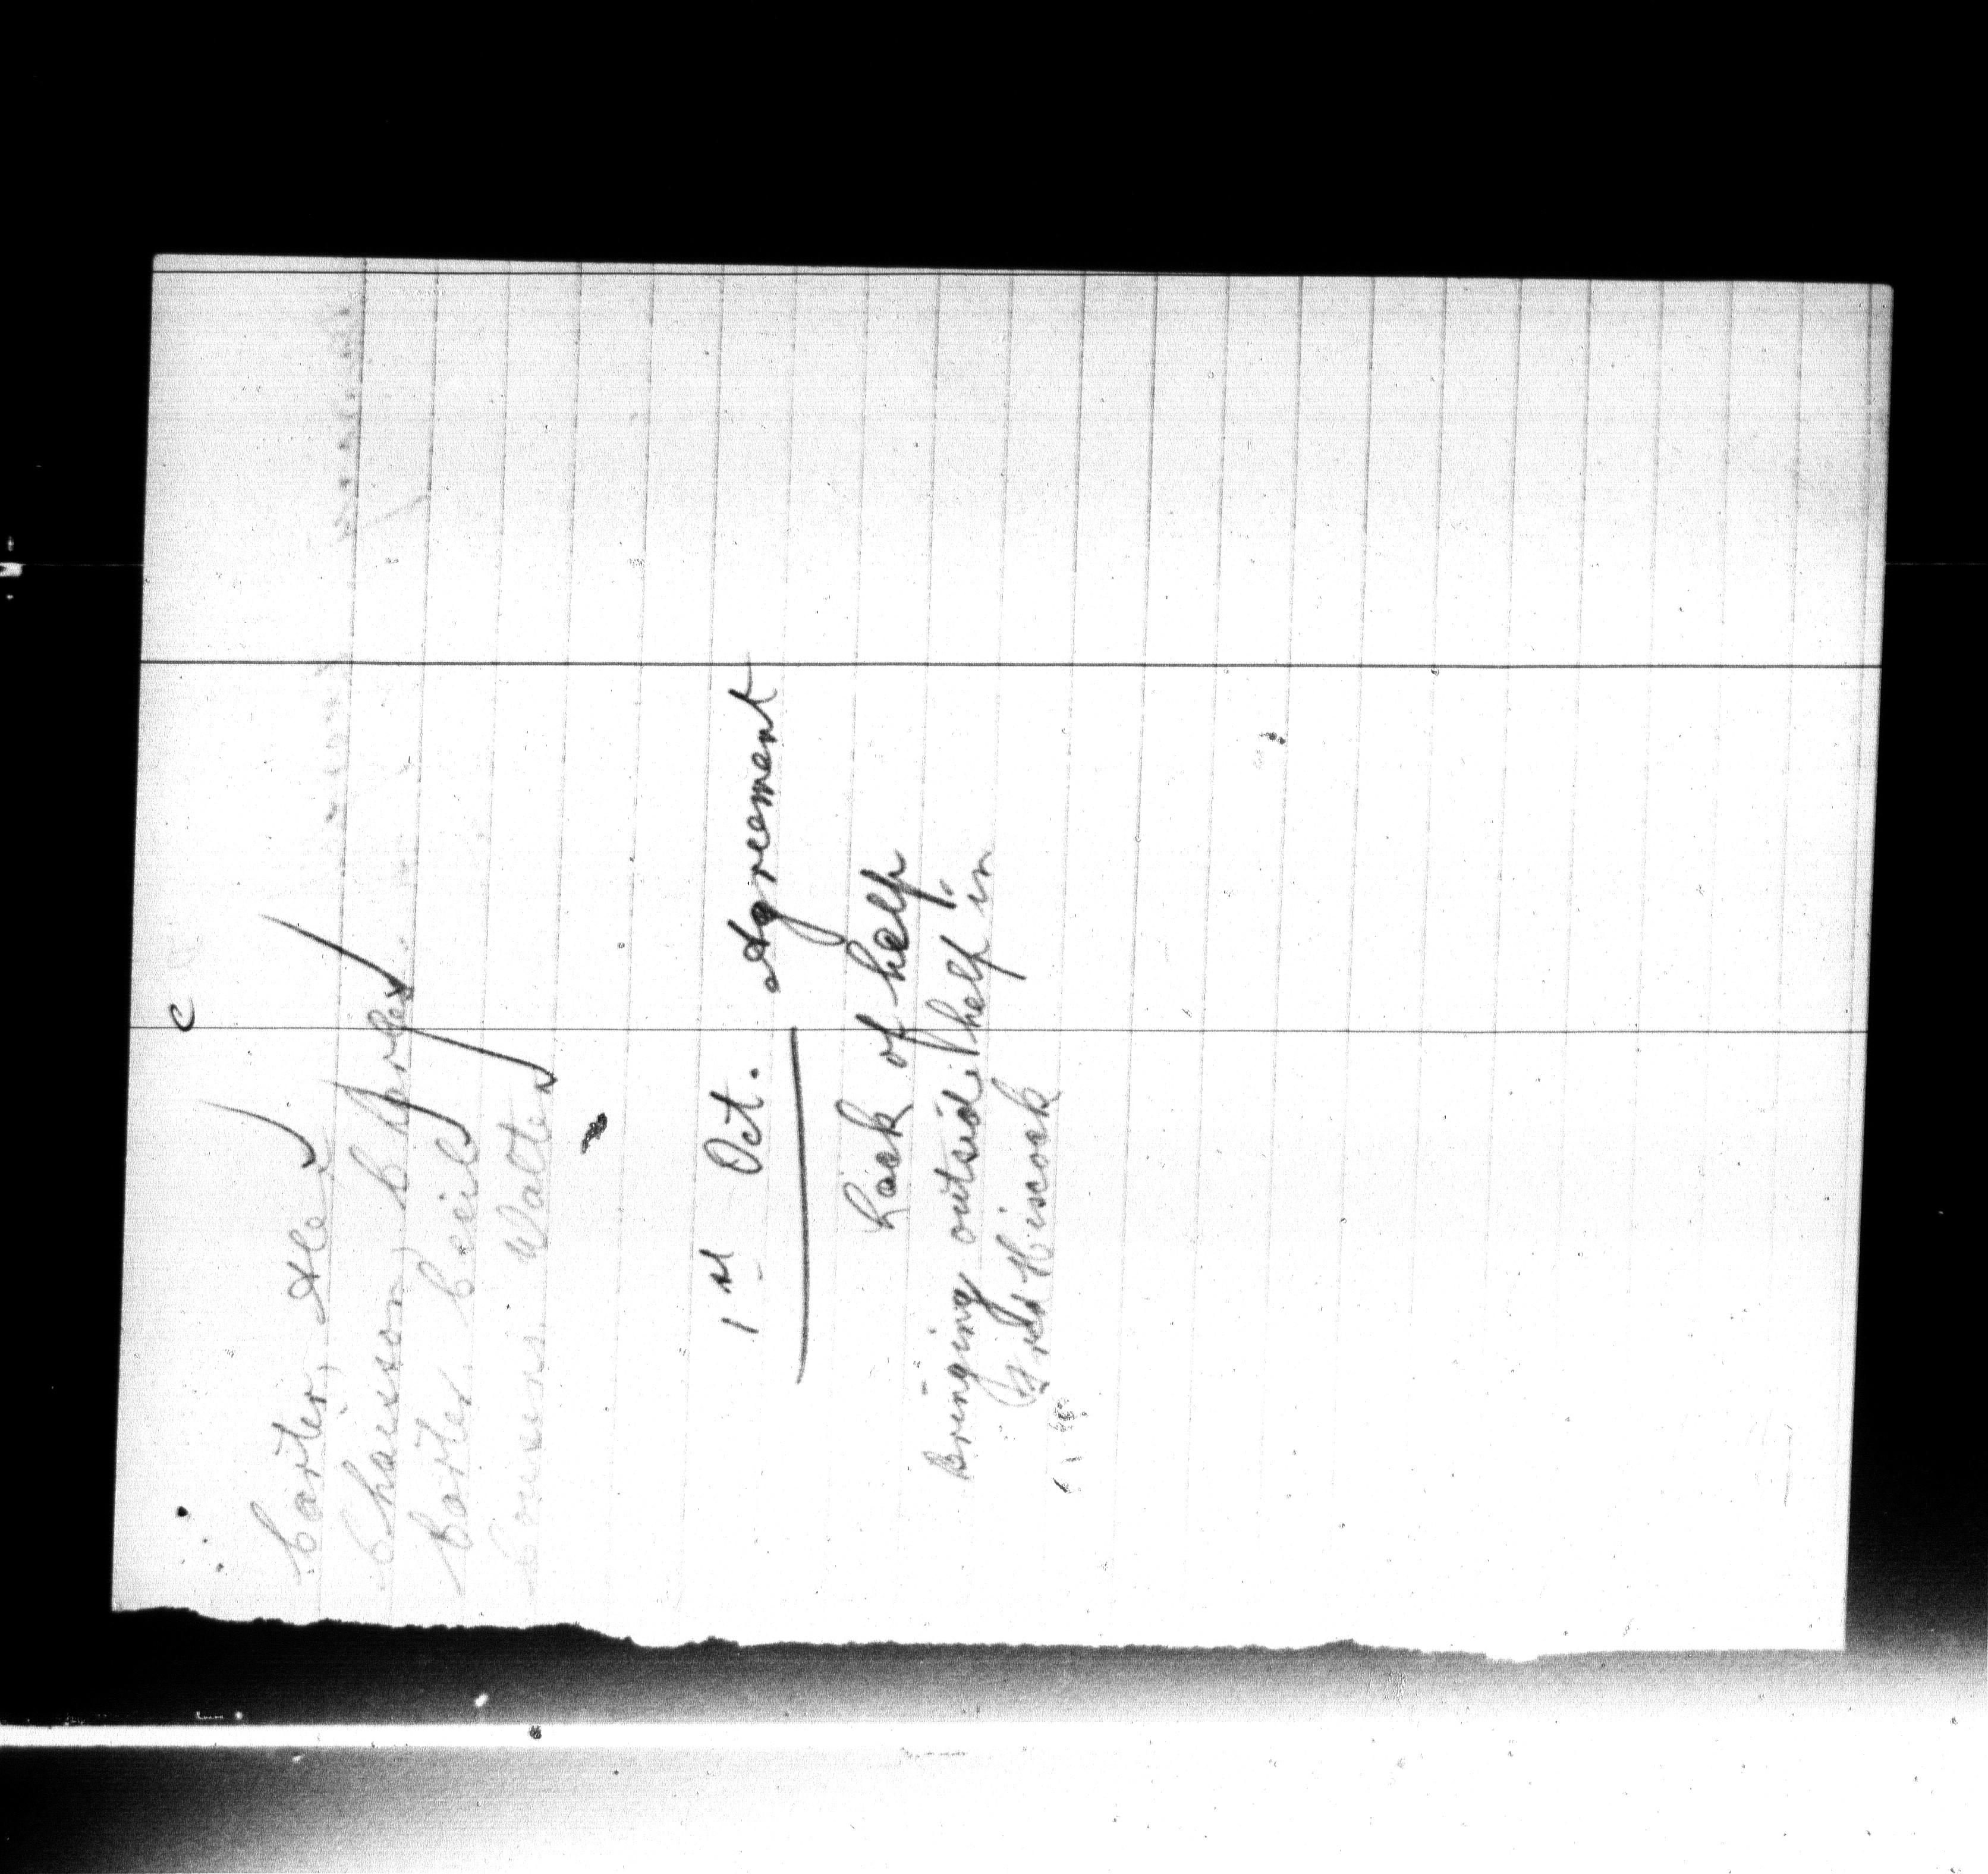 C
Carter, Alex ✓
Chaisson, Charles ✓
Carter, Cecil ✓
Cousens, Walter ✓
1st Oct. Agreement
Lack of help.
Bringing outside help in
Fred Hiscock